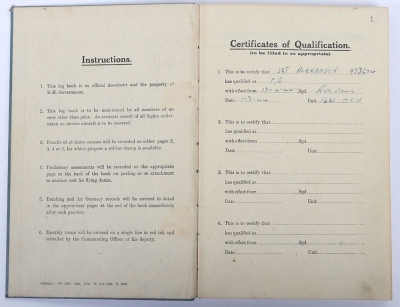 Instructions.
1. This log book is an official document and the property of
H.M. Government.
2. This log book is to be maintained by all members of air
crew other than pilot. An accurate record of all flights under-
taken on service aircraft is to be inserted.
3. Results of ab initio courses will be recorded on either pages 2,
3, 4 or 5, for which purpose a rubber stamp is available.
4. Proficiency assessments will be recorded on the appropriate
page at the back of the book on posting or on attachment
to another unit for flying duties.
5. Bombing and Air Gunnery records will be entered in detail
in the appropriate pages at the end of the book immediately
after each practice.
6. Monthly totals will be entered on a single line in red ink and
initialled by the Commanding Officer or his deputy.
1
Certificates of Qualification.
(to be filled in as appropriate)
1. This is to certify that SGT ALEXANDER
has qualified as
with effect from Sgd
Date Unit
2. This is to certify that
has qualified as
with effect from Sgd
Date Unit
3. This is to certify that
has qualified as
with effect from Sgd
Date Unit
4. This is to certify that
has qualified as
with effect from Sgd
Date Unit